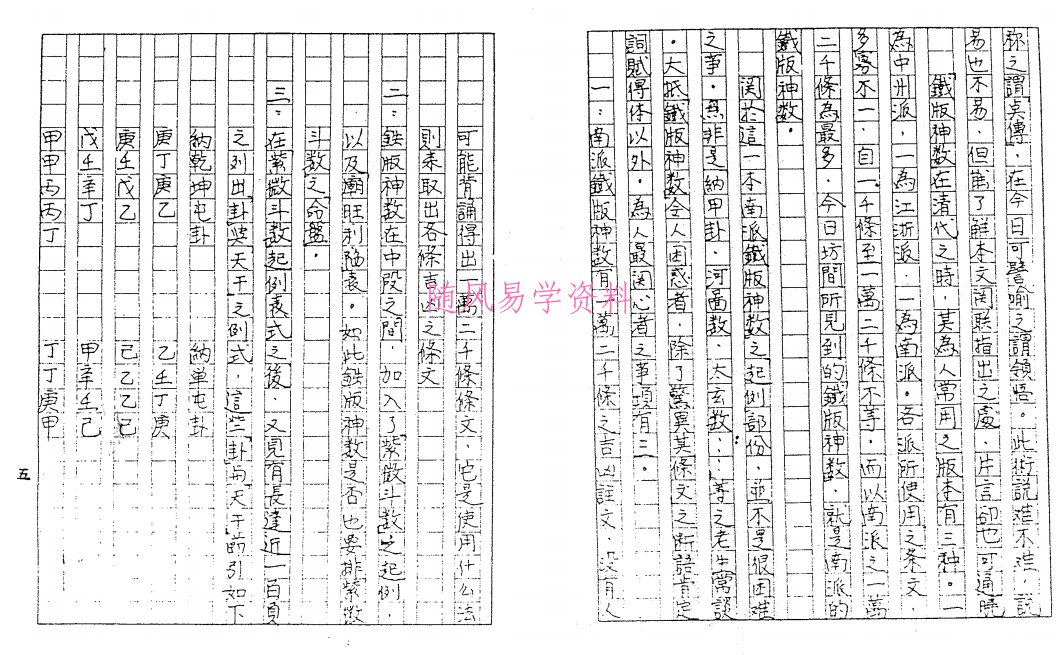 称之謂真傳，在今日可譬喻之謂領悟。此術説难不难，説
易也不易，但能了解本文関联指出之處，片言卻也可通曉
鐵版神数在清代之時，其為人常用之版本有三种。一
為中州派，一為江浙派，一為南派。各派所使用之条文，
多寡不一，自一千條至一萬二千條不等，而以南派之一萬
二千條為最多，今日坊間所見到的鐵版神数，就是南派的
鐵版神数。
関於這一本南派鐵版神数之起例部份，並不是很困难
之事，無非是納甲卦、河畐数、太玄数⋯等之老生常談
。大抵鐵版神数令人困惑者，除了驚異其條文之断語肯定
詞賦得体以外，為人最関心者之事項有三。
一：南派鐵版神数有一萬二千條之吉凶註文，没有人
可能背誦得出一萬二千條條文，它是使用什么法
則來取出各條吉凶之條文
二：鉄版神数在中段之間，加入了紫微斗数之起例，
以及廟旺利陥表。如此鉄版神数是否也要排紫微
斗数之命盤。
三：在紫微斗数起例表式之後，又見有長達近一百頁
之列出「卦與天干之例式，這些「卦与天干節引如下
納乾坤屯卦　納単屯卦
庚丁庚乙　乙壬丁庚
庚壬戊乙　己乙乙已
戊壬辛丁　甲辛壬己
甲甲丙丙丁　丁丁庚甲
五
随风易学资料